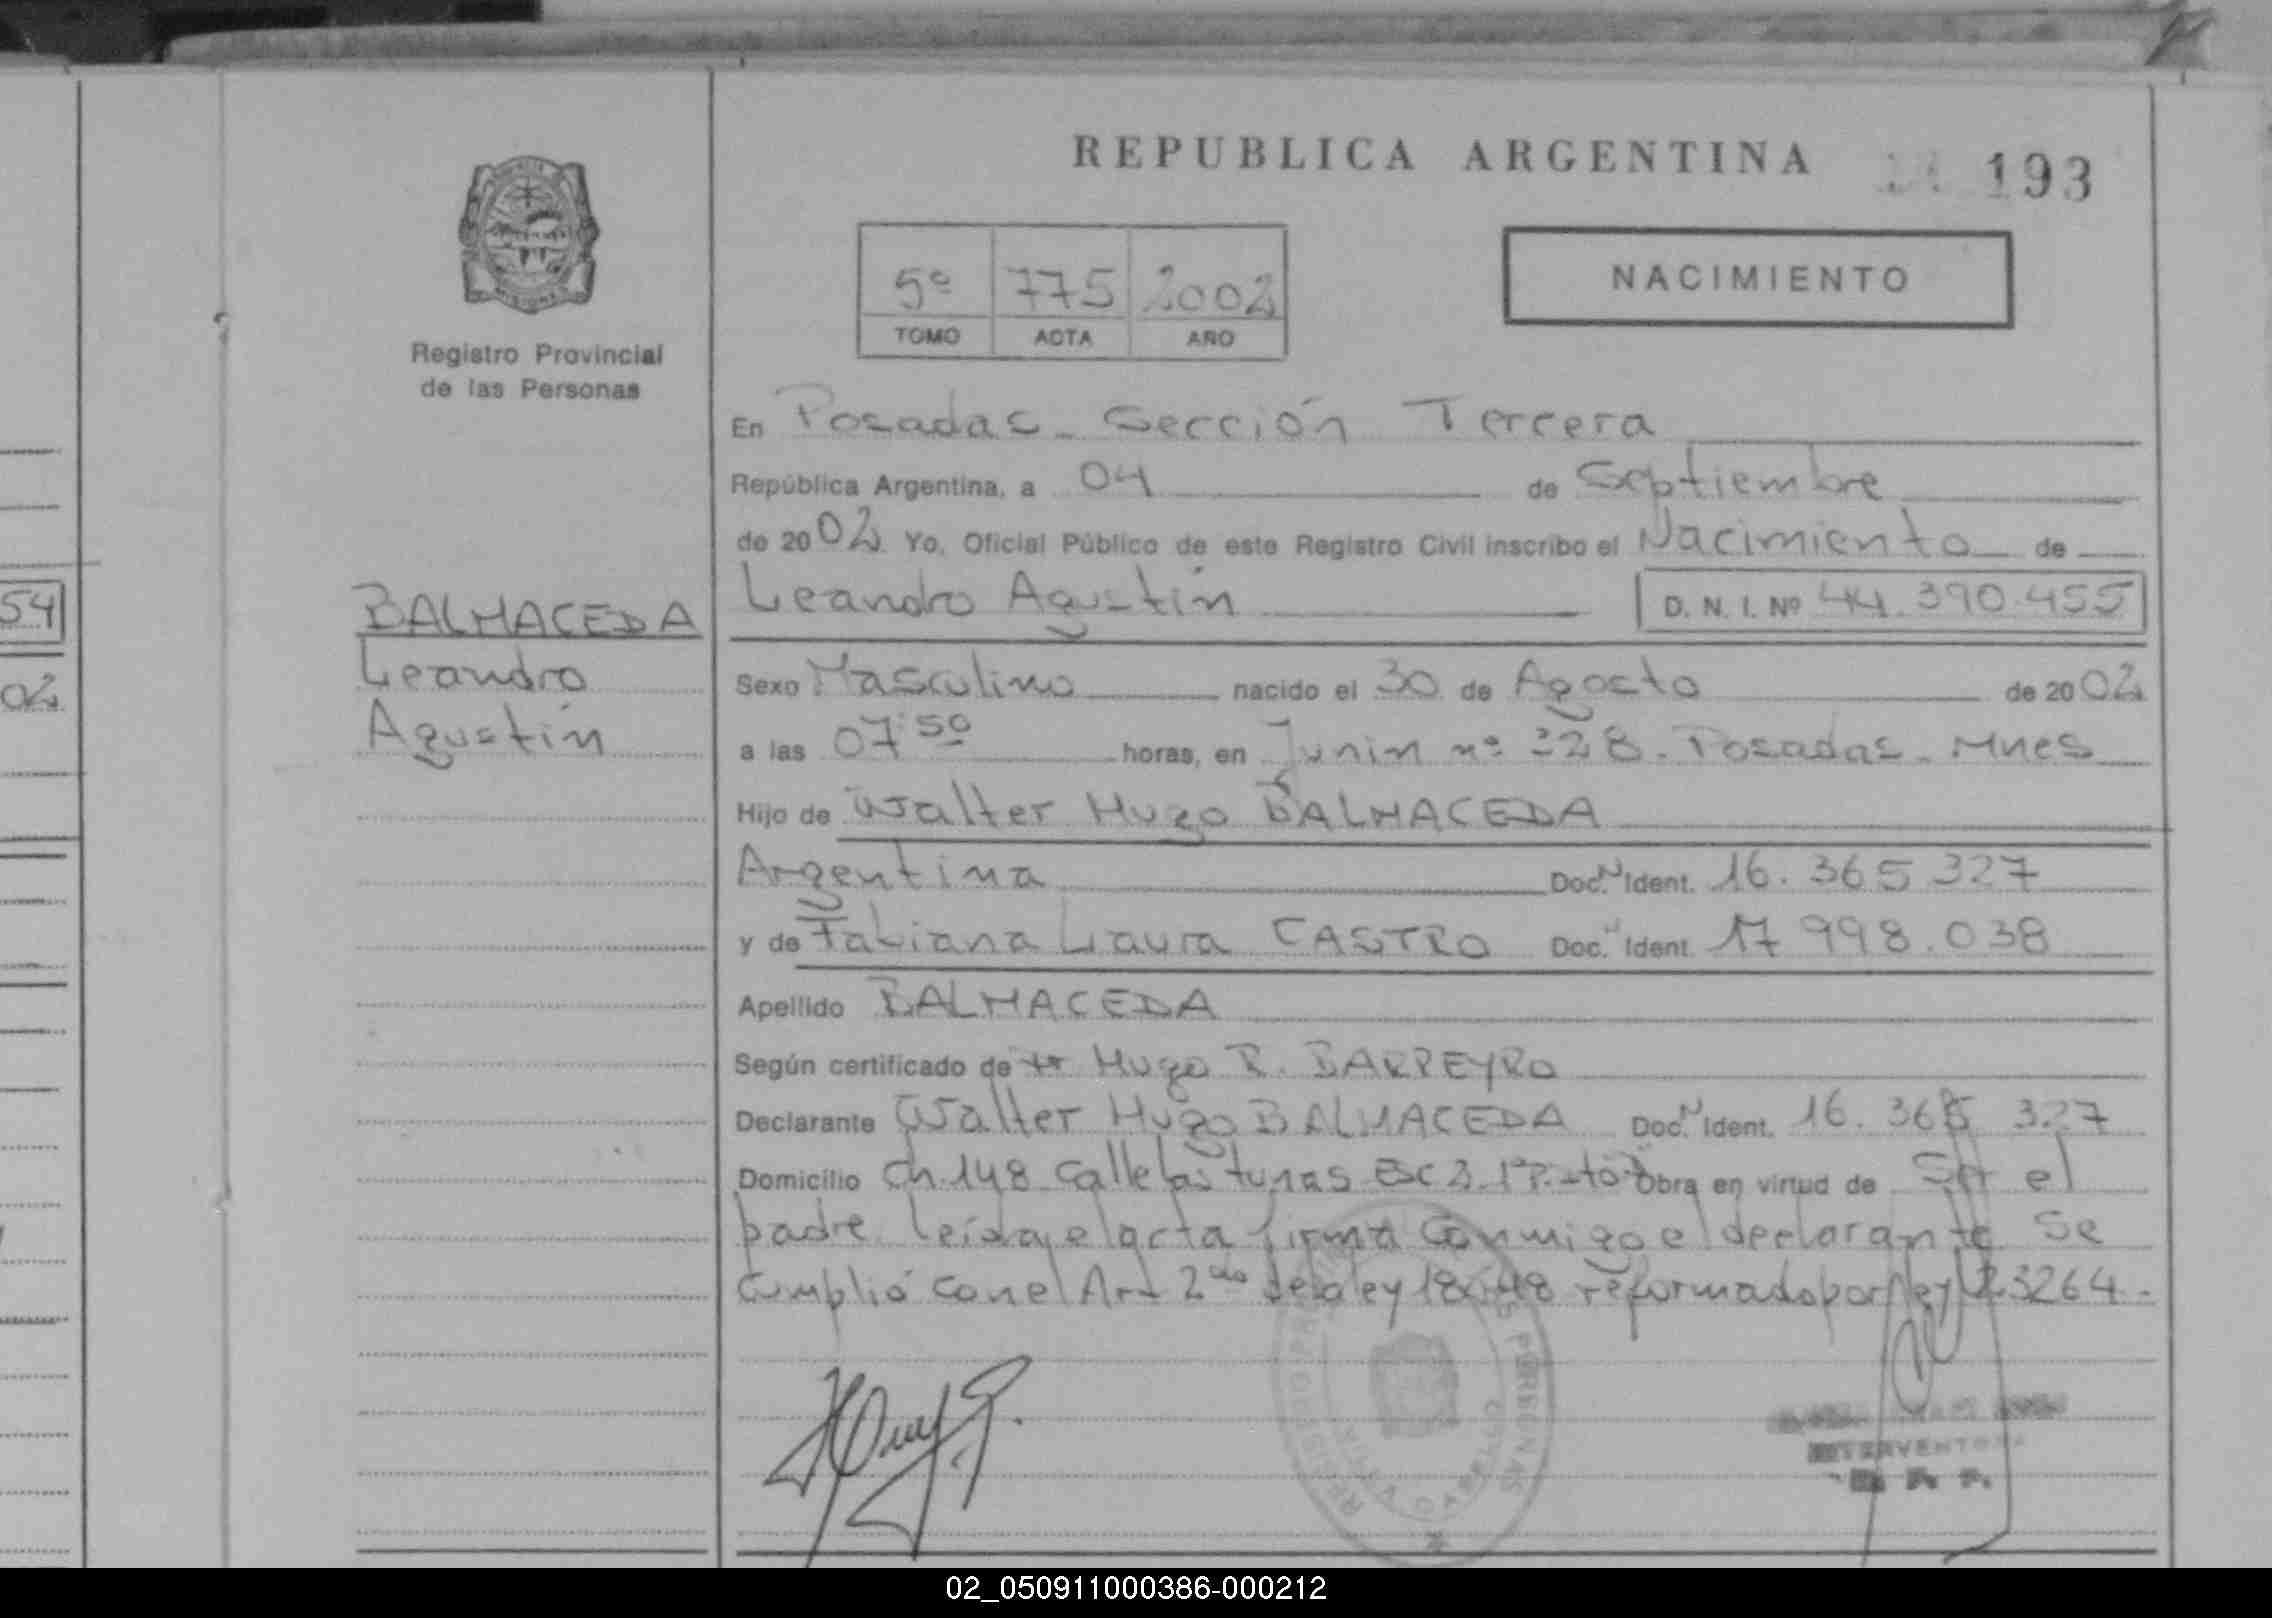 REPUBLICA ARGENTINA 193
5º 775 2002
TOMO ACTA AÑO
NACIMIENTO
Registro Provincial
de las Personas
En Posadas - Sección Tercera
República Argentina, a 04 de Septiembre
de 2002 Yo, Oficial Público de este Registro Civil inscribo el Nacimiento de
54
BALMACEDA
Leandro Agustín D. N. I. Nº 44.390.455
02
Leandro
Agustín
Sexo Masculino nacido el 30 de Agosto de 2002
a las 07 50 horas, en Junin nº 328 - Posadas - Mnes
Hijo de Walter Hugo BALMACEDA
Argentina Doc. N Ident. 16.365 327
y de Fabiana Laura CASTRO Doc. N Ident. 17 998.038
Apellido BALMACEDA
Según certificado de Hugo R. BARREYRO
Declarante Walter Hugo BALMACEDA Doc. N Ident. 16.365 327
Domicilio Ch.148 calle las tunas Esc 2. 1º P. Obra en virtud de Ser el
padre leída el acta firma conmigo el declarante Se
cumplió con el Art 2 de la ley reformado por ley 23264.
REGISTRO PERSONAS
VILLA CABELLO
INTERVENTORA
R. P. P.
02_050911000386-000212